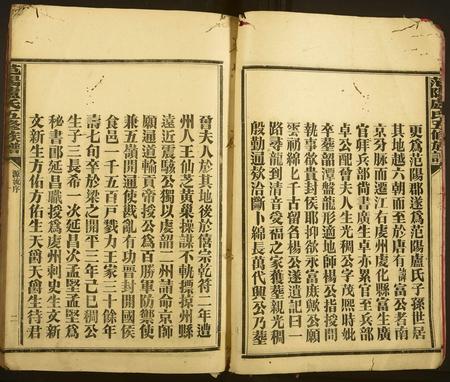 范陽盧氏五修族譜
更爲范陽郡遂爲范陽盧氏子孫世居
其地越六朝而至於唐有諱富公者南
京分脈而遷江右虔州虔化縣富生廣
官拜兵部尚書廣生卓亦累官至兵部
卓公配曾夫人生光稠公字茂熙時妣
卒葬韶潭盤龍形適地師楊公指授問
執事欲貴封侯耶抑欲永富底歟公願
雲初綿七千古留名楊公遂遺記曰一
路尋龍到清音愛福之家獲葬親光稠
殷勤通欵洽斷卜綿長萬代興公乃葬
曾夫人於其地後於僖宗乾符二年遭
州人王仙芝黃巢操謀不軌擾掠州縣
遠近震駭公獨以虔韶二州請命京師
願通道輸貢帝授公爲百勝軍防禦使
兼五嶺開通使戡亂有功晉封開國侯
食邑一千五百戸戮力王家三十餘年
壽七旬卒於梁之開平三年己巳稠公
生子三長希一次延昌次孟堅孟堅爲
秘書郎延昌職授爲虔州刺史生文新
文新生方佑方佑生天爵天爵生待君
范陽盧氏五修族譜
源流序
二